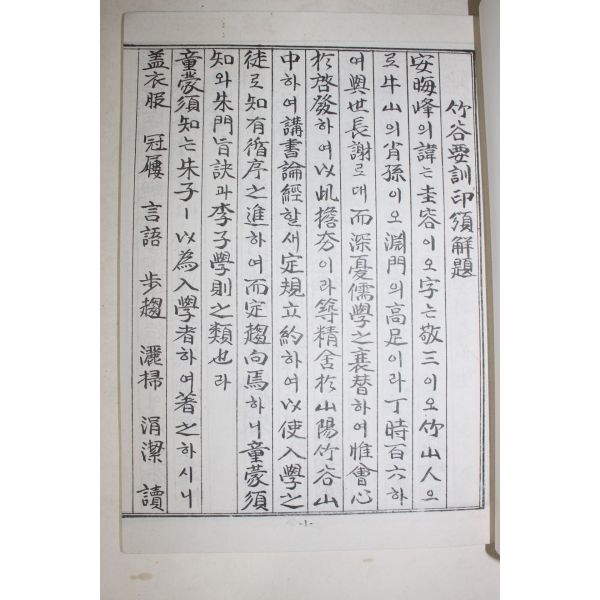 竹谷要訓印頒解題
安晦峰의諱는圭容이오字는敬三이오竹山人으
로牛山의肖孫이오淵門의高足이라丁時百六하
여與世長謝로대而深憂儒學之衰替하여惟會心
於啓發하여以此擔夯이라築精舍於山陽竹谷山
中하여講書論經할새定規立約하여以使入學之
徒로知有循序之進하여而定趨向焉하니童蒙須
知와朱門旨訣과李子學則之類也라
童蒙須知는朱子ㅣ以為入學者하여著之하시니
盖衣服 冠屨 言語 步趨 灑掃 涓潔 讀
-1-